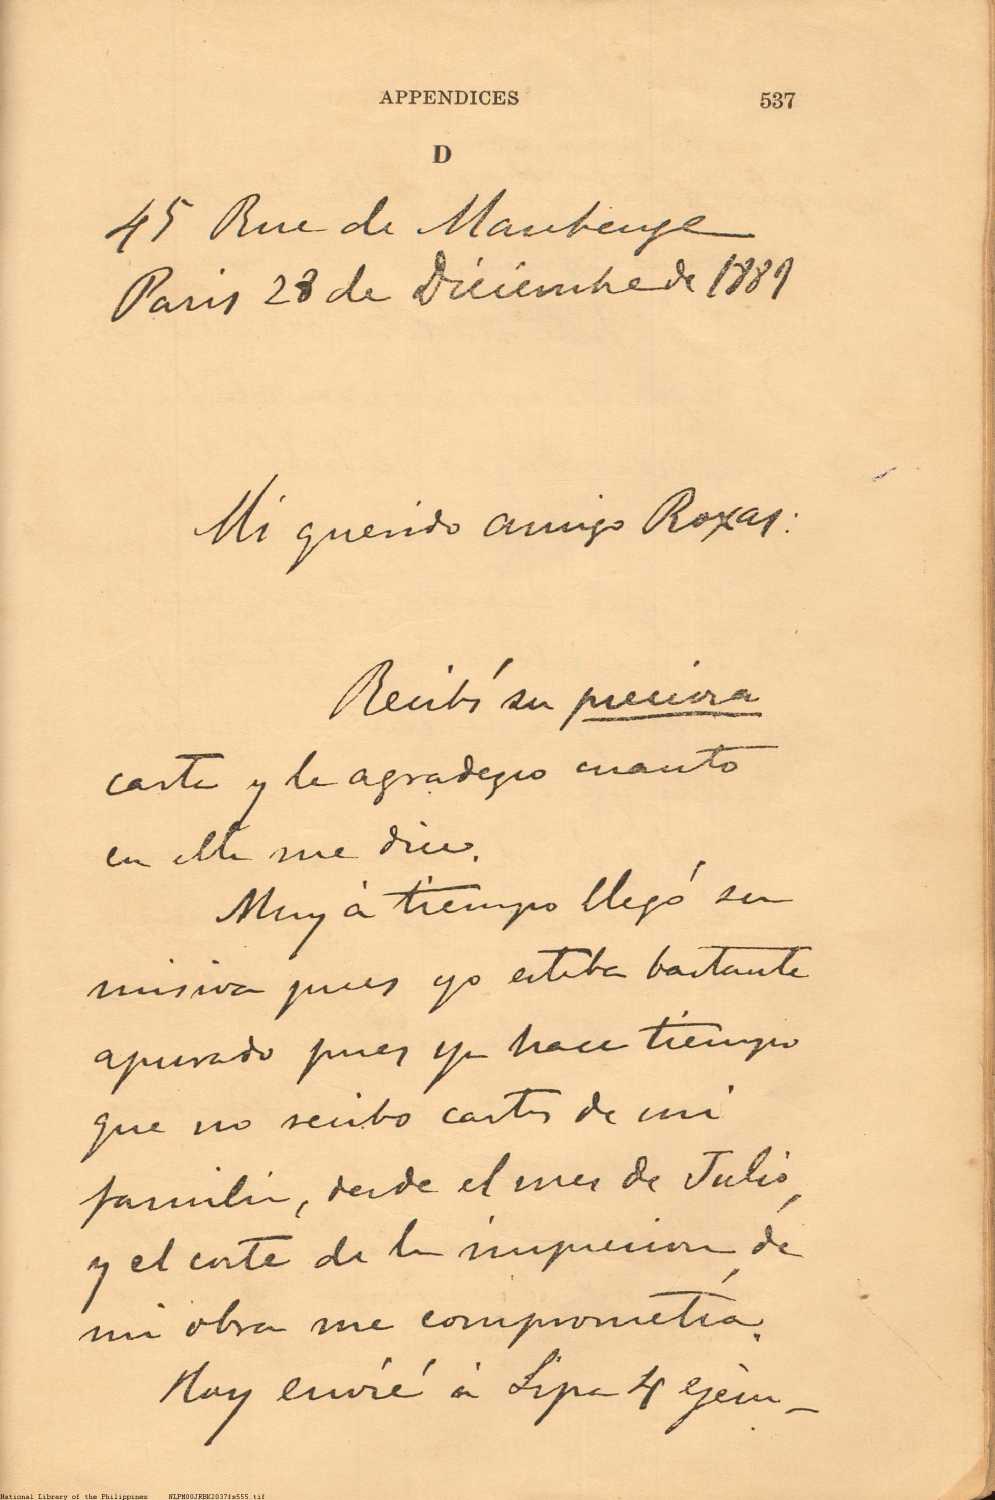 APPENDICES
537
D
45 Rue de Maubeuge
Paris 28 de Diciembre de 1889
Mi querido amigo Roxas:
Recibí su preciosa
carta y le agradezco cuanto
en ella me dice.
Muy á tiempo llegó su
misiva pues yo estaba bastante
apurado pues ya hace tiempo
que no recibo cartas de mi
familia, desde el mes de Julio,
y el coste de la impresion de
mi obra me comprometía.
Hoy envié á Lipa 4 ejem-
National Library of the Philippines NLPM00JRBK2037fs555.tif